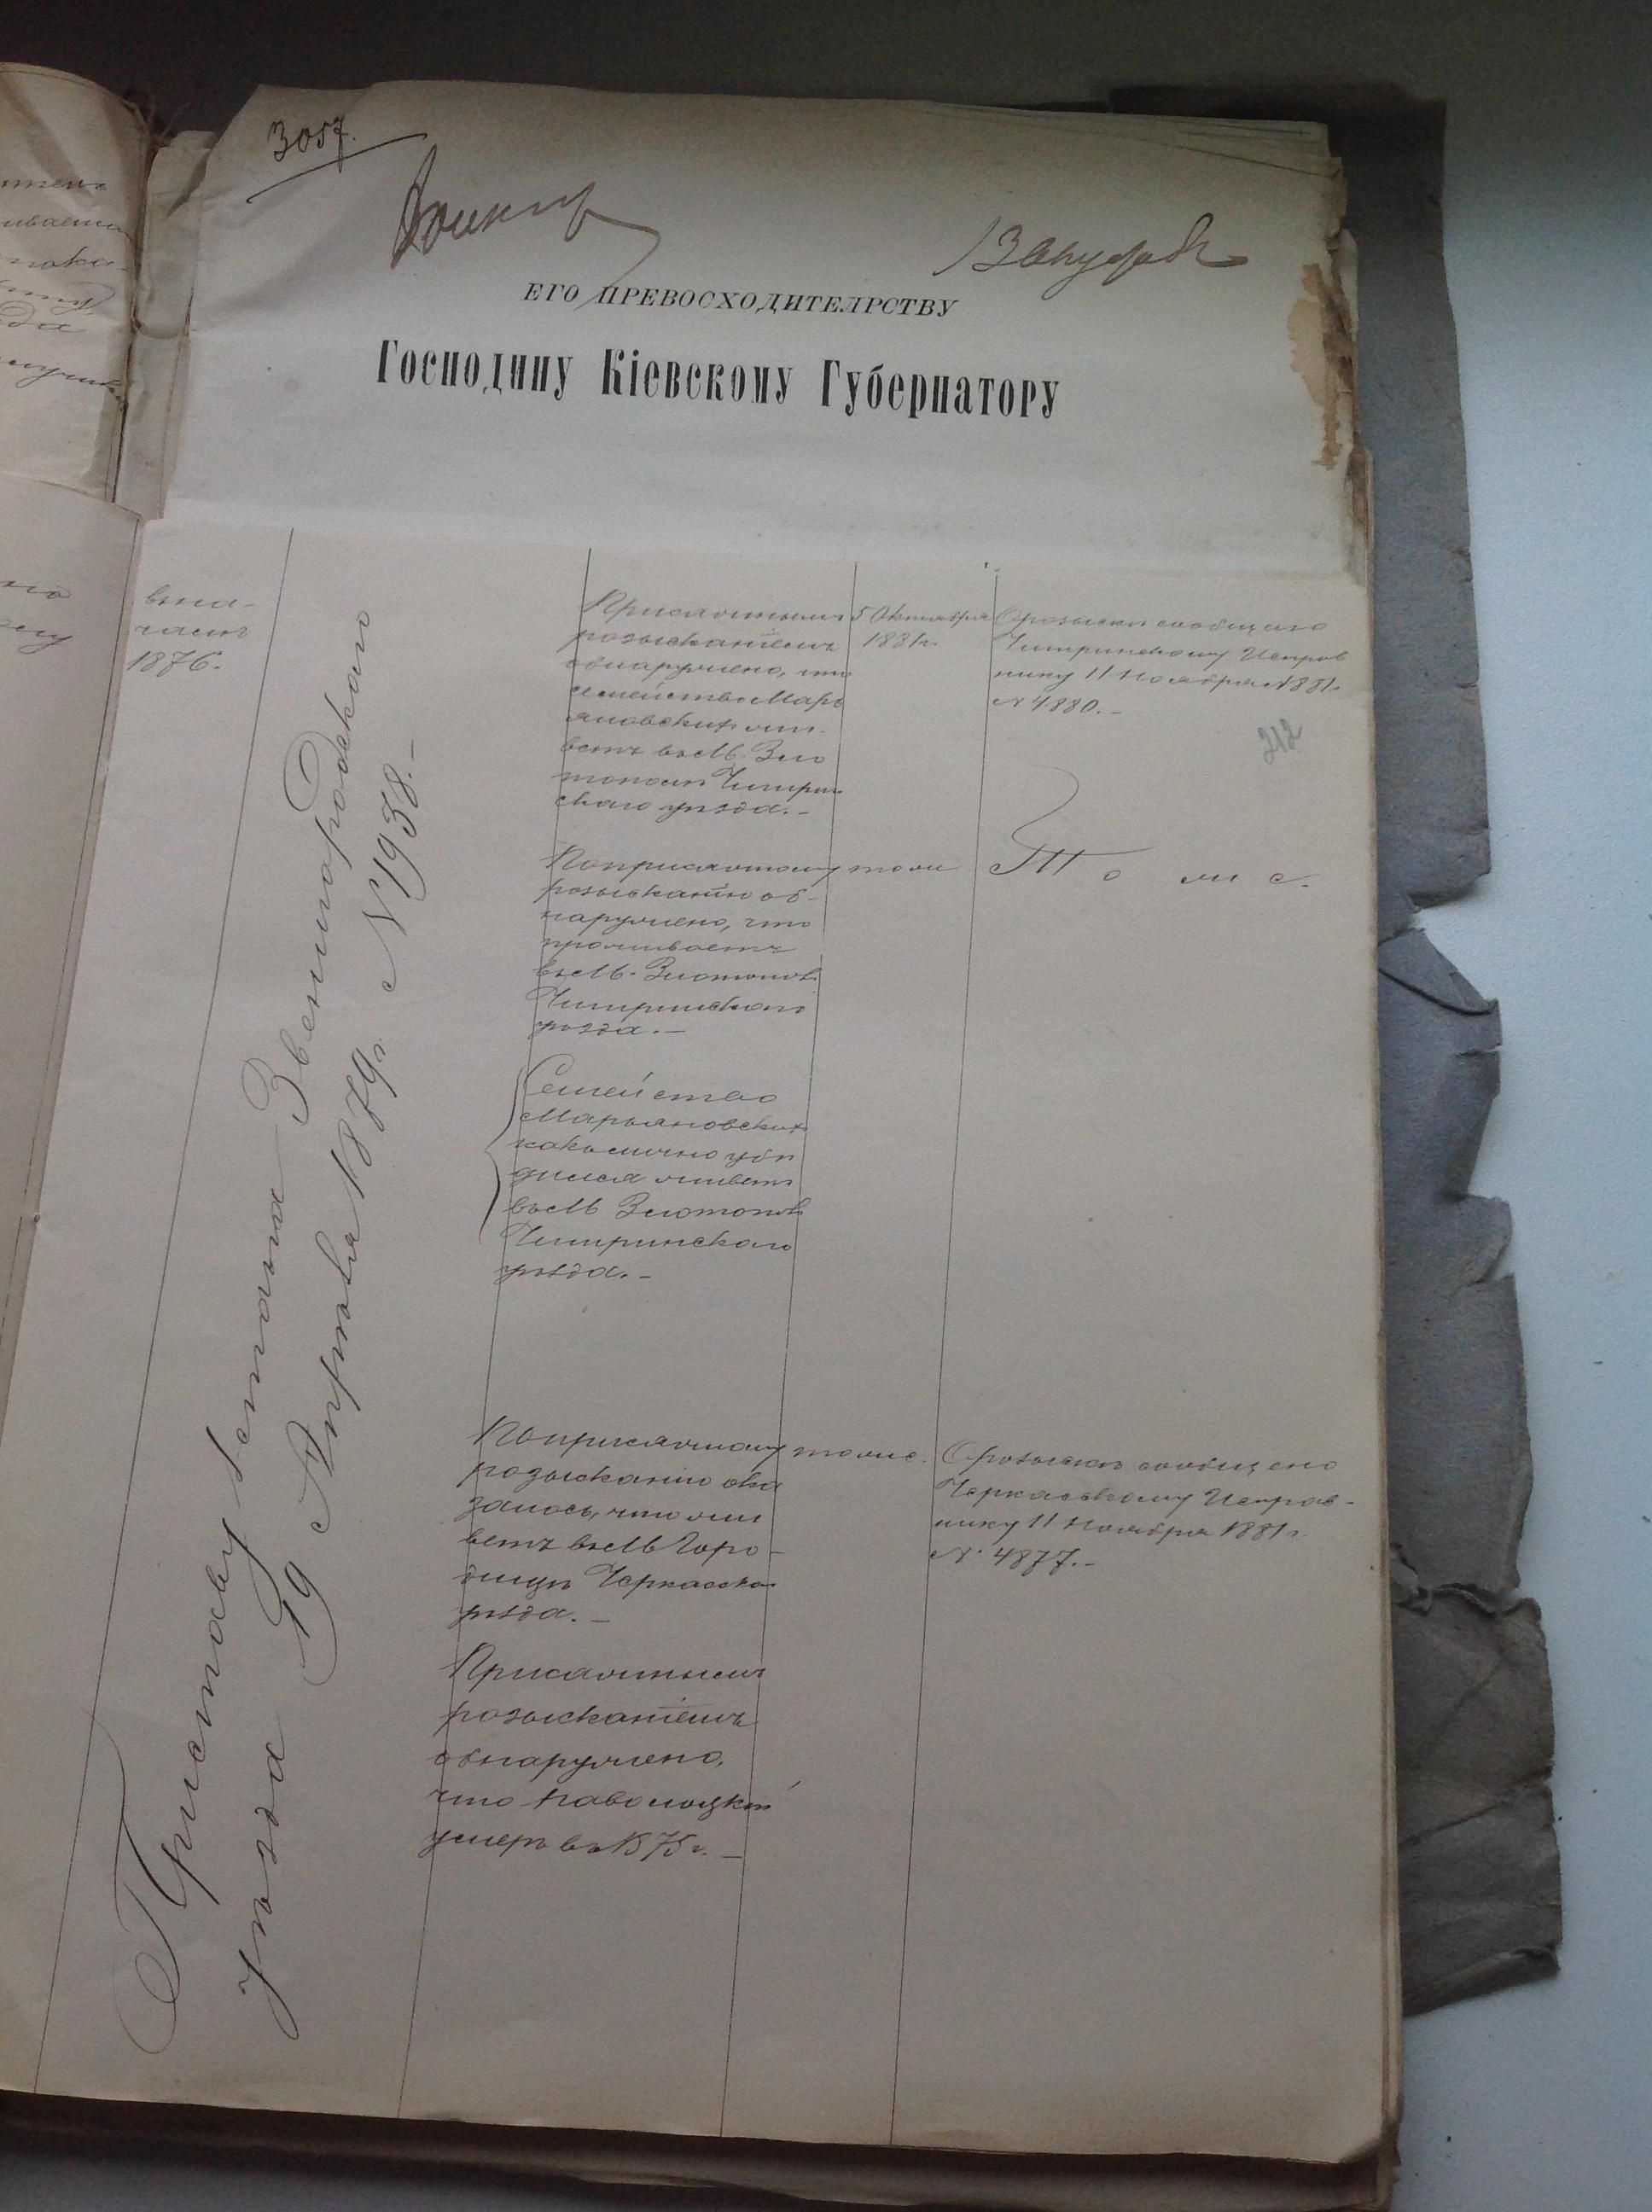 3057.
ЕГО ПРЕВОСХОДИТЕЛРСТВУ
Господину Кіевскому Губернатору
212
вна-
часть
1876.
Приставу 1 стана Звенигородского
уѣзда 19 Апрѣля 1879 г. N 1938.-
Присяжнымъ
розысканіемъ
обнаружено, что
семейство Марь
яновскихъ жи-
ветъ въ М. Зло
тополѣ Чигирин
скаго уѣзда.-
5 Октября
1881 г.
О розыскѣ сообщено
Чигиринскому Исправ
нику 11 Ноября 1881 г.
N 4880.-
По присяжному
розысканію об-
наружено, что
проживаетъ
въ М. Златополѣ
Чигиринскаго
уѣзда.-
тоже
То же.
Семейство
Марьяновскихъ
какъ лично убѣ
дился живетъ
въ М Златополѣ
Чигиринскаго
уѣзда.-
По присяжному
розысканію ока
залось, что жи
ветъ въ М Горо-
дищѣ Черкасска
уѣзда.-
тоже.
О розыскѣ сообщено
Черкасскому Исправ-
нику 11 Ноября 1881 г.
N. 4877.-
Присяжнымъ
розысканіемъ
обнаружено,
что Паволоцкій
умеръ въ 1875 г.-